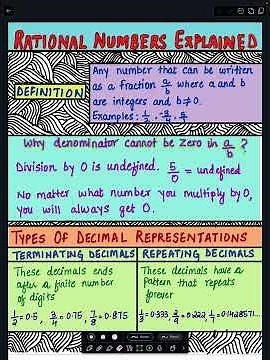 RATIONAL NUMBERS EXPLAINED
DEFINITION
Any number that can be written
as a fraction a/b where a and b
are integers and b≠0.
Examples: 1/2,
Why denominator cannot be zero in a/b ?
Division by 0 is undefined. 5/0 = undefined
No matter what number you multiply by 0,
you will always get 0.
TYPES OF DECIMAL REPRESENTATIONS
TERMINATING DECIMALS
These decimals ends
after a finite number
of digits
1/2 = 0.5, 3/4 = 0.75, 7/8 = 0.875
REPEATING DECIMALS
These decimals have a
pattern that repeats
forever
1/3 = 0.333, 2/9 = 0.222, 1/7 = 0.1428571...